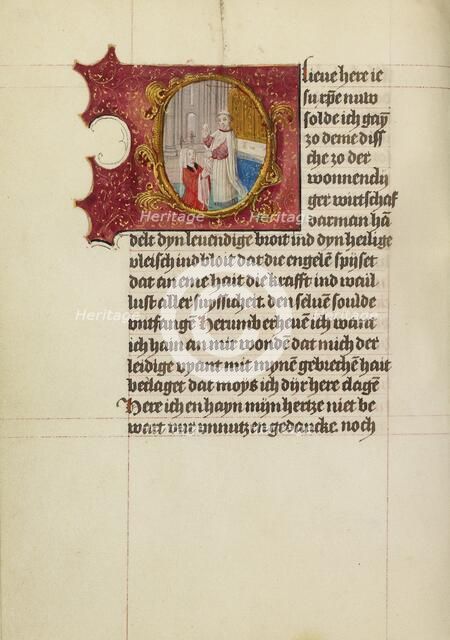 lieue here ie
su rp̄e nuw
solde ich gaȳ
zo deme diss
che zo der
wonnencly
ger wirtschaf
dar man hā
delt dyn leuendige broit ind dyn heilige
vleisch ind bloit dat die engelen spijset
dat an eme hait die krafft ind wail
lust aller suyssicheit. den seluē soulde
untfangē Herumb erbeuen ich want
ich hain an mit wondē dat mich der
leidige vyant mit mynē gebrechen hait
beclaget dat moys ich dyr here clagē
Here ich en hayn mijn hertze niet be
wart vur unnutzen gedancke. noch
Heritage
Heritage
Heritage
Heritage
Heritage